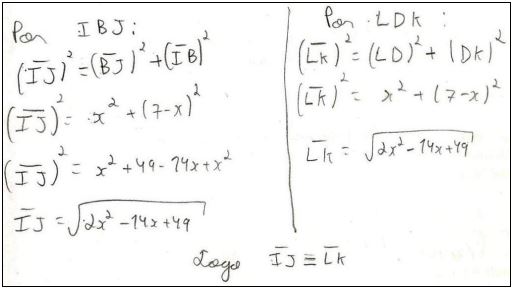 Por IBJ:
(I̅J̅)² = (B̅J̅)² + (I̅B̅)²
(I̅J̅)² = x² + (7-x)²
(I̅J̅)² = x² + 49 - 14x + x²
I̅J̅ = √(2x² - 14x + 49)
Por LDK:
(L̅K̅)² = (LD)² + (DK)²
(L̅K̅)² = x² + (7-x)²
L̅K̅ = √(2x² - 14x + 49)
Logo I̅J̅ ≡ L̅K̅